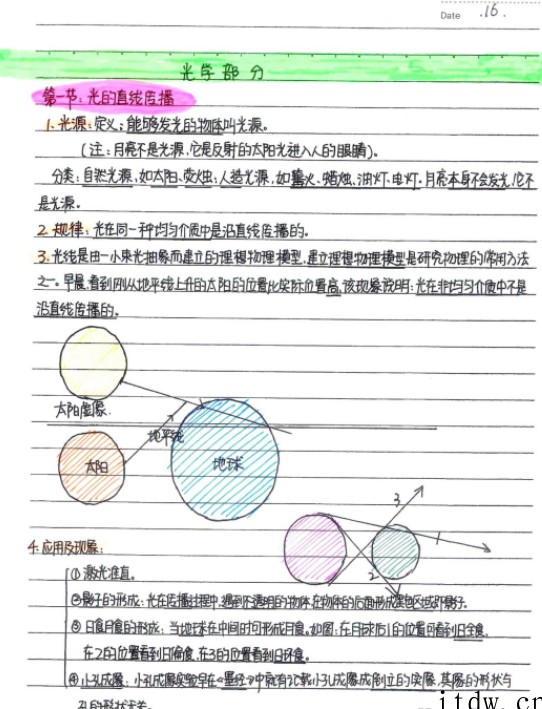 Date .16.
光学部分
第一节:光的直线传播
1.光源:定义:能够发光的物体叫光源。
(注:月亮不是光源,它是反射的太阳光进入人的眼睛)。
分类:自然光源,如太阳、荧烛;人造光源,如篝火、蜡烛、油灯、电灯。月亮本身不会发光,它不
是光源。
2.规律:光在同一种均匀介质中是沿直线传播的。
3.光线是由一小束光抽象而建立的理想物理模型,建立理想物理模型是研究物理的常用方法
之一。早晨,看到刚从地平线上升的太阳的位置比实际位置高,该现象说明:光在非均匀介质中不是
沿直线传播的。
太阳虚像.
地平线
太阳
地球
3
1
2
4.应用及现象:
①激光准直。
②影子的形成:光在传播过程中,遇到不透明的物体,在物体的后面形成黑色区域即影子。
③日食月食的形成:当地球在中间时可形成月食。如图:在月球后1的位置可看到日全食,
在2的位置看到日偏食,在3的位置看到日环食。
④小孔成像:小孔成像实验早在《墨经》中就有记载小孔成像成倒立的实像,其像的形状与
孔的形状无关。
itdw.cn